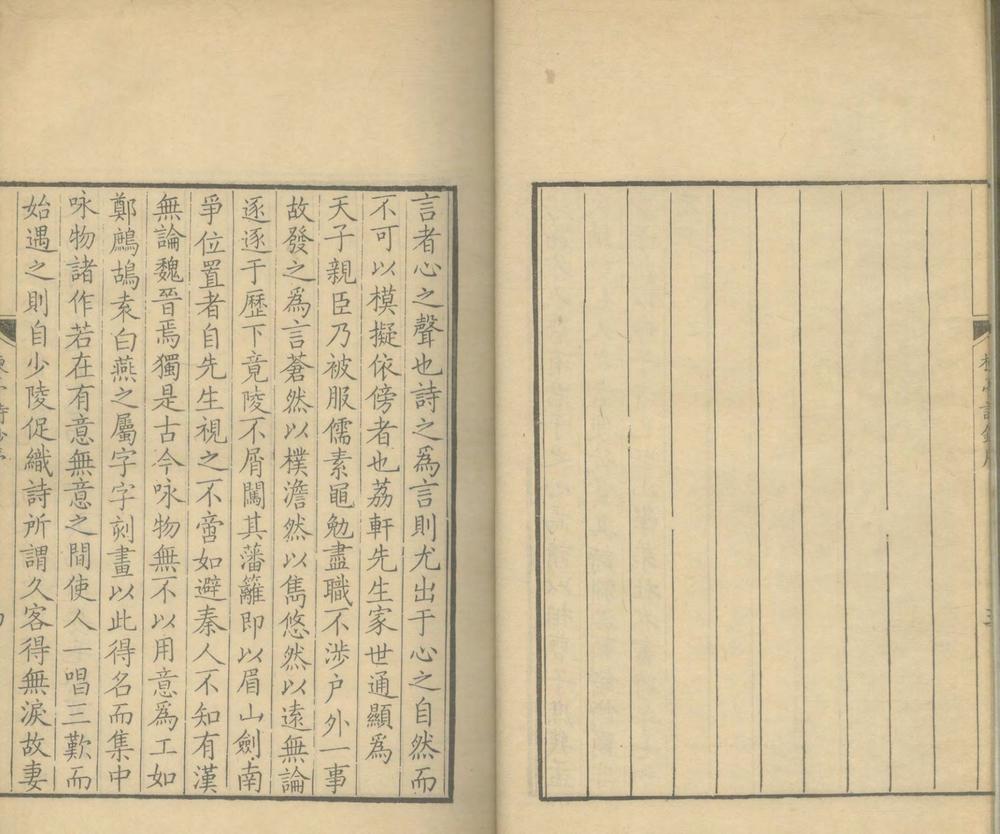 言者心之聲也詩之為言則尤出于心之自然而
不可以模擬依傍者也荔軒先生家世通顯為
天子親臣乃被服儒素黽勉盡職不渉户外一事
故發之為言蒼然以樸澹然以雋悠然以遠無論
逐逐于歷下竟陵不屑闖其藩籬即以眉山劍南
爭位置者自先生視之不啻如避秦人不知有漢
無論魏晉焉獨是古今咏物無不以用意為工如
鄭鷓鴣袁白燕之屬字字刻畫以此得名而集中
咏物諸作若在有意無意之間使人一唱三歎而
始遇之則自少陵促織詩所謂久客得無淚故妻